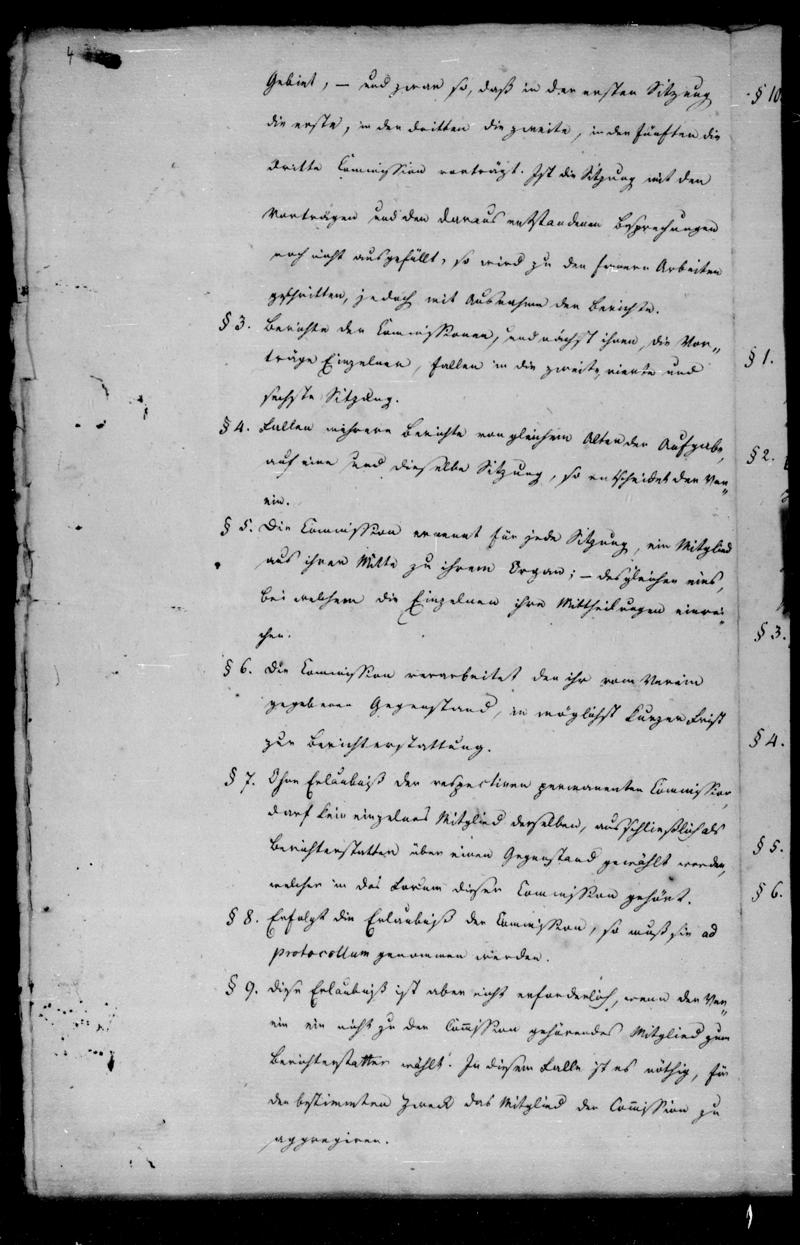 4
Gebiet, – und zwar so, daß in der ersten Sitzung
die erste, in der dritten die zweite, in der fünften die
dritte Commission vorträgt. Ist die Sitzung mit den
Vorträgen und den daraus entstandenen Besprechungen
noch nicht ausgefüllt, so wird zu den fernern Arbeiten
geschritten, jedoch mit Ausnahme der Berichte.
§ 3. Berichte der Commissionen, und nächst ihnen, die Vor„
träge Einzelner, fallen in die zweite, vierte und
sechste Sitzung.
§ 4. Fallen mehrere Berichte von gleichem Alter der Aufgabe,
auf eine und dieselbe Sitzung, so entscheidet der Ver„
ein.
§ 5. Die Commission ernennt für jede Sitzung, ein Mitglied
aus ihrer Mitte zu ihrem Organ; – desgleichen eins,
bei welchem die Einzelnen ihre Mittheilungen einrei„
chen.
§ 6. Die Commission verarbeitet den ihr vom Verein
gegebenen Gegenstand, in möglichst kurzer Frist
zur Berichterstattung.
§ 7. Ohne Erlaubniß der respectiven permanenten Commission,
darf kein einzelnes Mitglied derselben, ausschließlich als
Berichterstatter über einen Gegenstand gewählt werden,
welcher in das Forum dieser Commission gehört.
§ 8. Erfolgt die Erlaubniß der Commission, so muß sie ad
protocollum genommen werden.
§ 9. Diese Erlaubniß ist aber nicht erforderlich, wenn der Ver„
ein ein nicht zu der Com̄ission gehörendes Mitglied zum
Berichterstatter wählt. In diesem Falle ist es nöthig, für
den bestimmten Zweck das Mitglied der Com̄ission zu
aggregiren.
§ 10
§ 1.
§ 2.
§ 3.
§ 4.
§ 5.
§ 6.